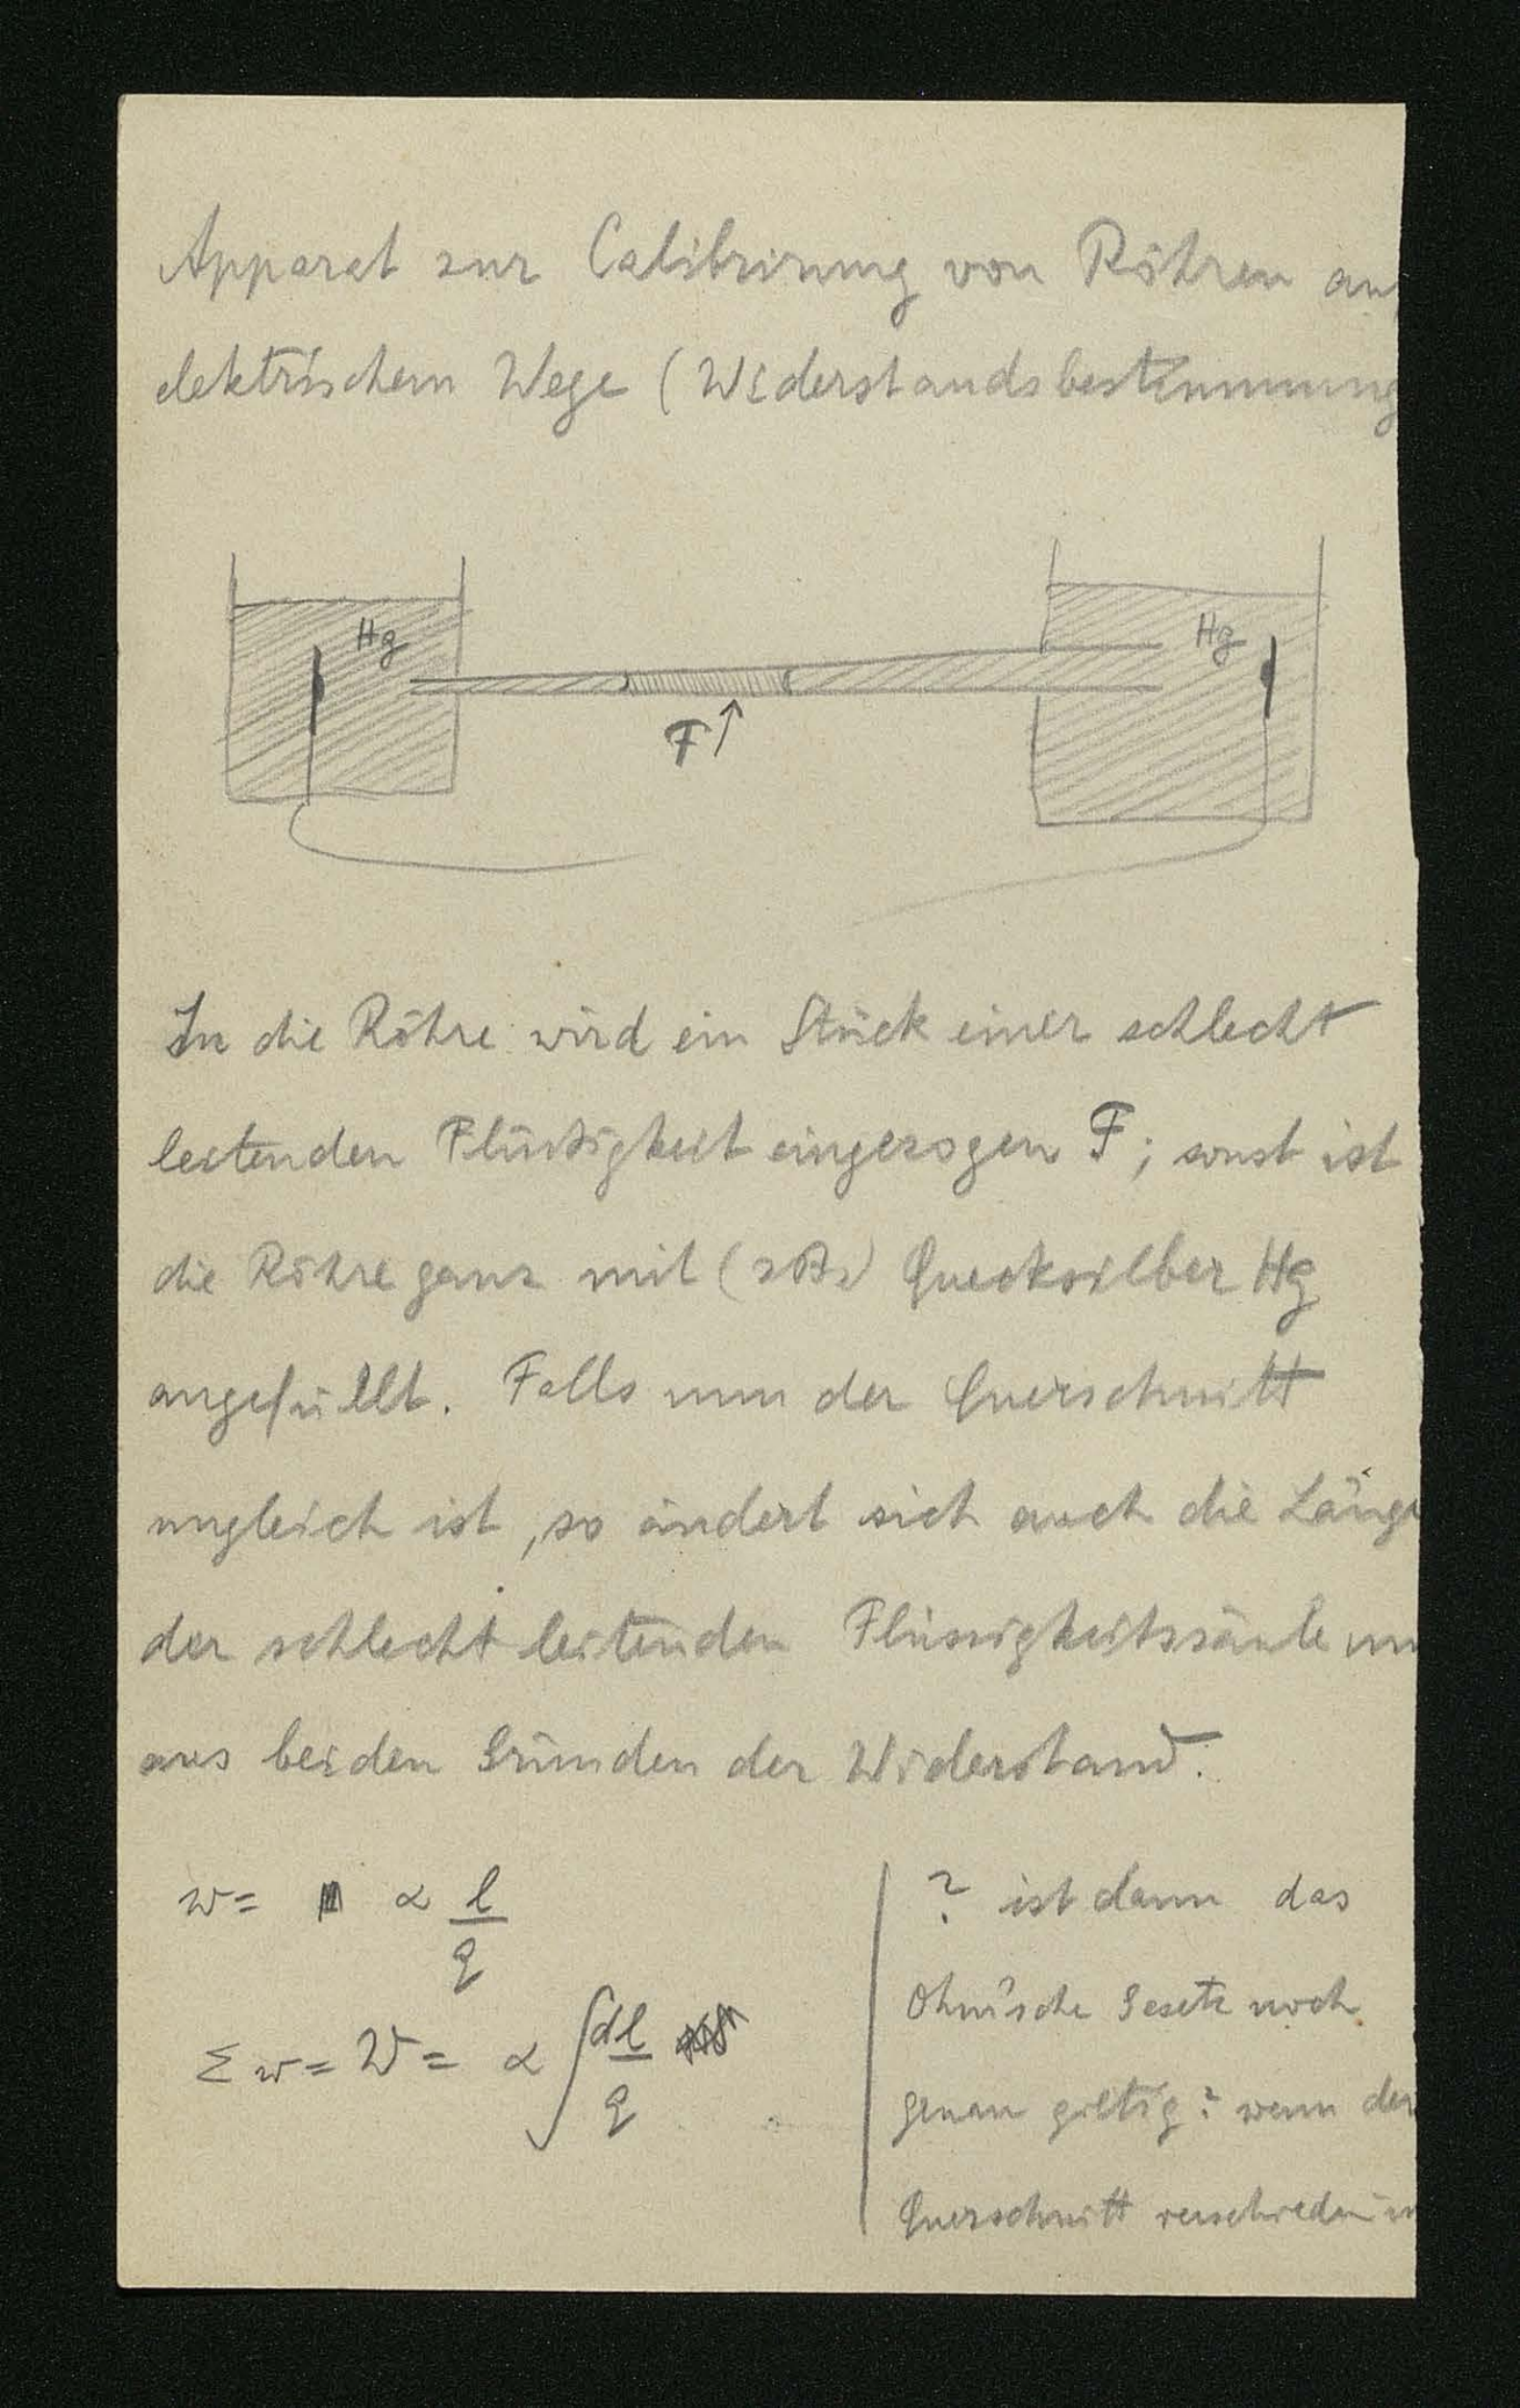 Apparat zur Calibrirung von Röhren au
elektrischem Wege (Widerstandsbestimmung
Hg
Hg
F↑
In die Röhre wird ein Stück einer schlecht
leitenden Flüssigkeit eingezogen F; sonst ist
die Röhre ganz mit (zB.) Quecksilber Hg
angefüllt. Falls nun der Querschnitt
ungleich ist, so ändert sich auch die Länge
der schlecht leitenden Flüssigkeitssäule un
aus beiden Gründen der Widerstand.
w = α l/q
Σw = W = α ∫ dl/q
? ist dann das
Ohm'sche Gesetz noch
genau giltig? wenn der
Querschnitt verschieden is